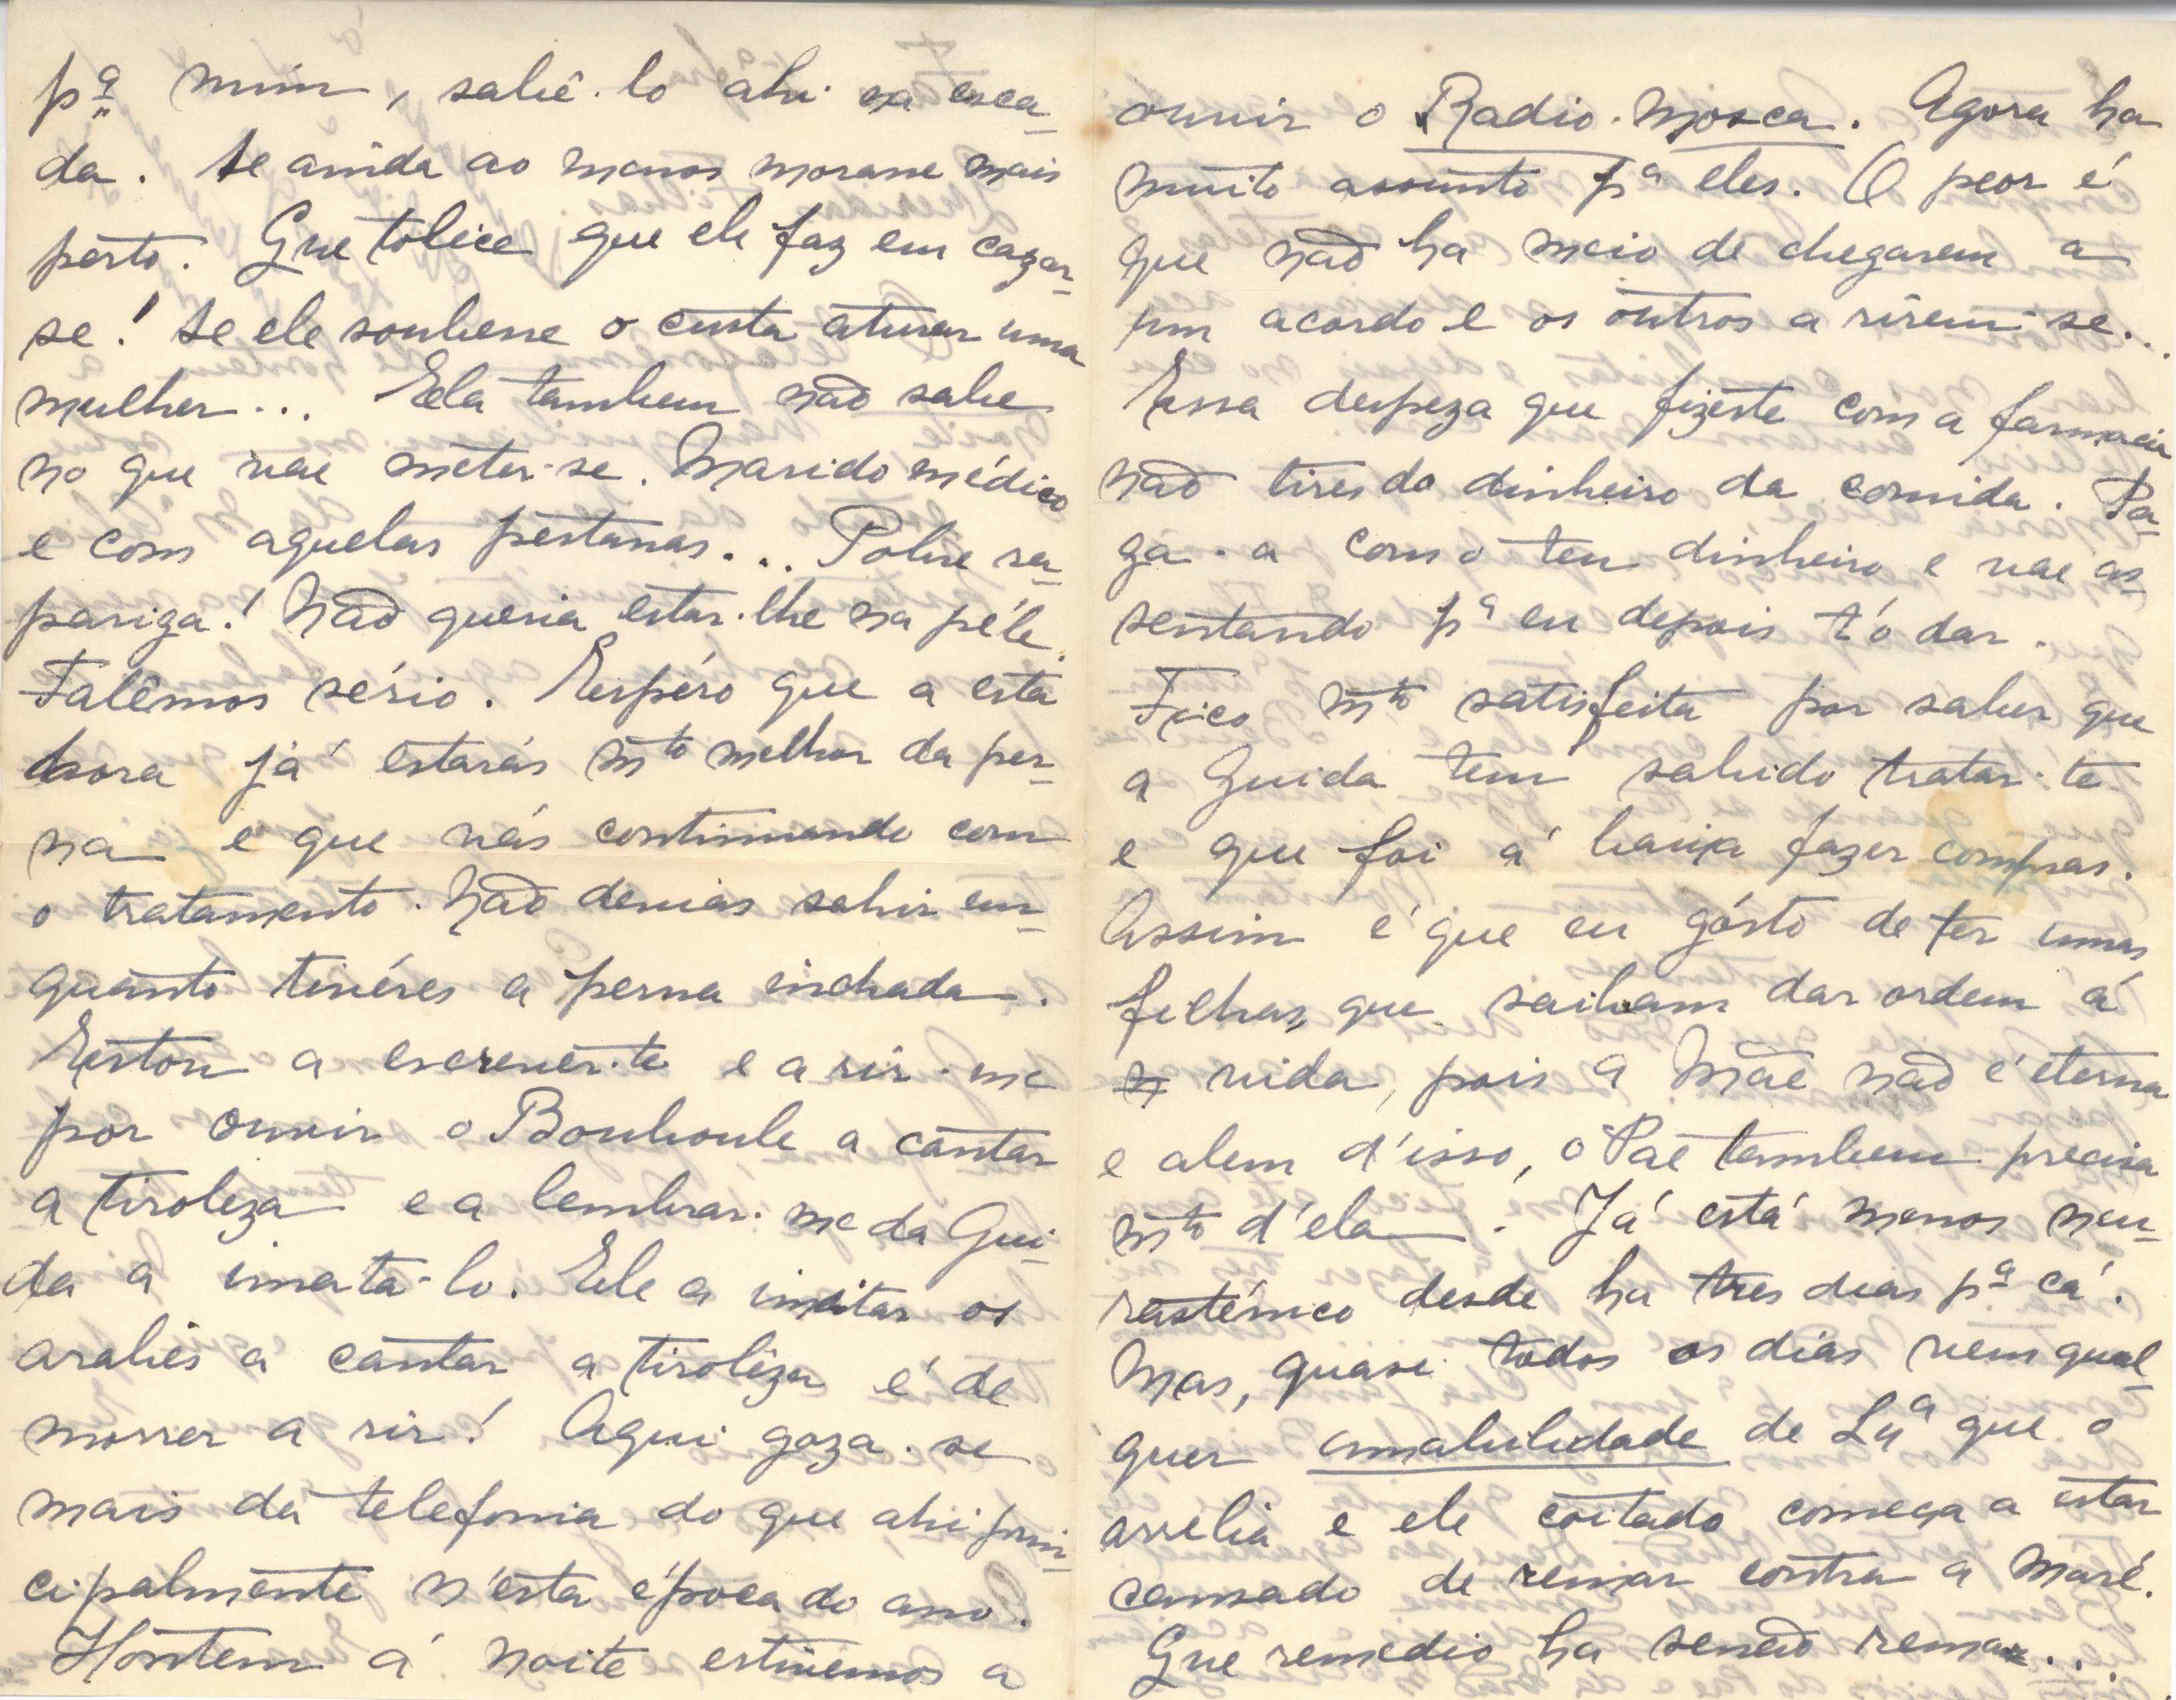 pª mim, sabê-lo ahi na esca-
da. Se ainda ao menos morasse mais
perto. Que tolice que ele faz em cazar-
se! Se ele soubesse o custa aturar uma
mulher... Ela tambem não sabe
no que vae meter-se. Marido médico
e com aquelas pestanas... Pobre ra-
pariga! Não queria estar-lhe na péle.
Falêmos sério. Espéro que a esta
hora já estarás mto melhor da per-
na e que vás continuando com
o tratamento. Não devias sahir em-
quanto tivéres a perna inchada.
Estou a escrever-te e a rir-me
por ouvir o Bouboule a cantar
a tiroleza e a lembrar-me da Gui-
da a imata-lo. Ele a imitar os
arabes a cantar a tiroleza é de
morrer a rir! Aqui goza-se
mais da telefonia do que ahi prin-
cipalmente n'esta época do ano.
Hontem á noite estivemos a
ouvir o Radio-Mosca. Agora ha
muito assunto pª eles. O peor é
que não ha meio de chegarem a
um acordo e os outros a rirem-se...
Essa despeza que fizéste com a farmacia
não tires do dinheiro da comida. Pa-
ga-a com o teu dinheiro e vae as-
sentando pª eu depois t'o dar.
Fico mto satisfeita por saber que
a Guida tem sabido tratar-te
e que foi á baixa fazer compras.
Assim é que eu gósto de ter umas
filhas, que saibam dar ordem á
vida, pois a Mãe não é eterna
e alem d'isso, o Pae tambem precisa
mto d'ela. Já está menos neu-
rasténico desde ha tres dias pª cá.
Mas, quase todos os dias vem qual-
quer amabilidade de Lxª que o
arrelia e ele coitado começa a estar
cansado de remar contra a maré.
Que remedio ha senão remar...